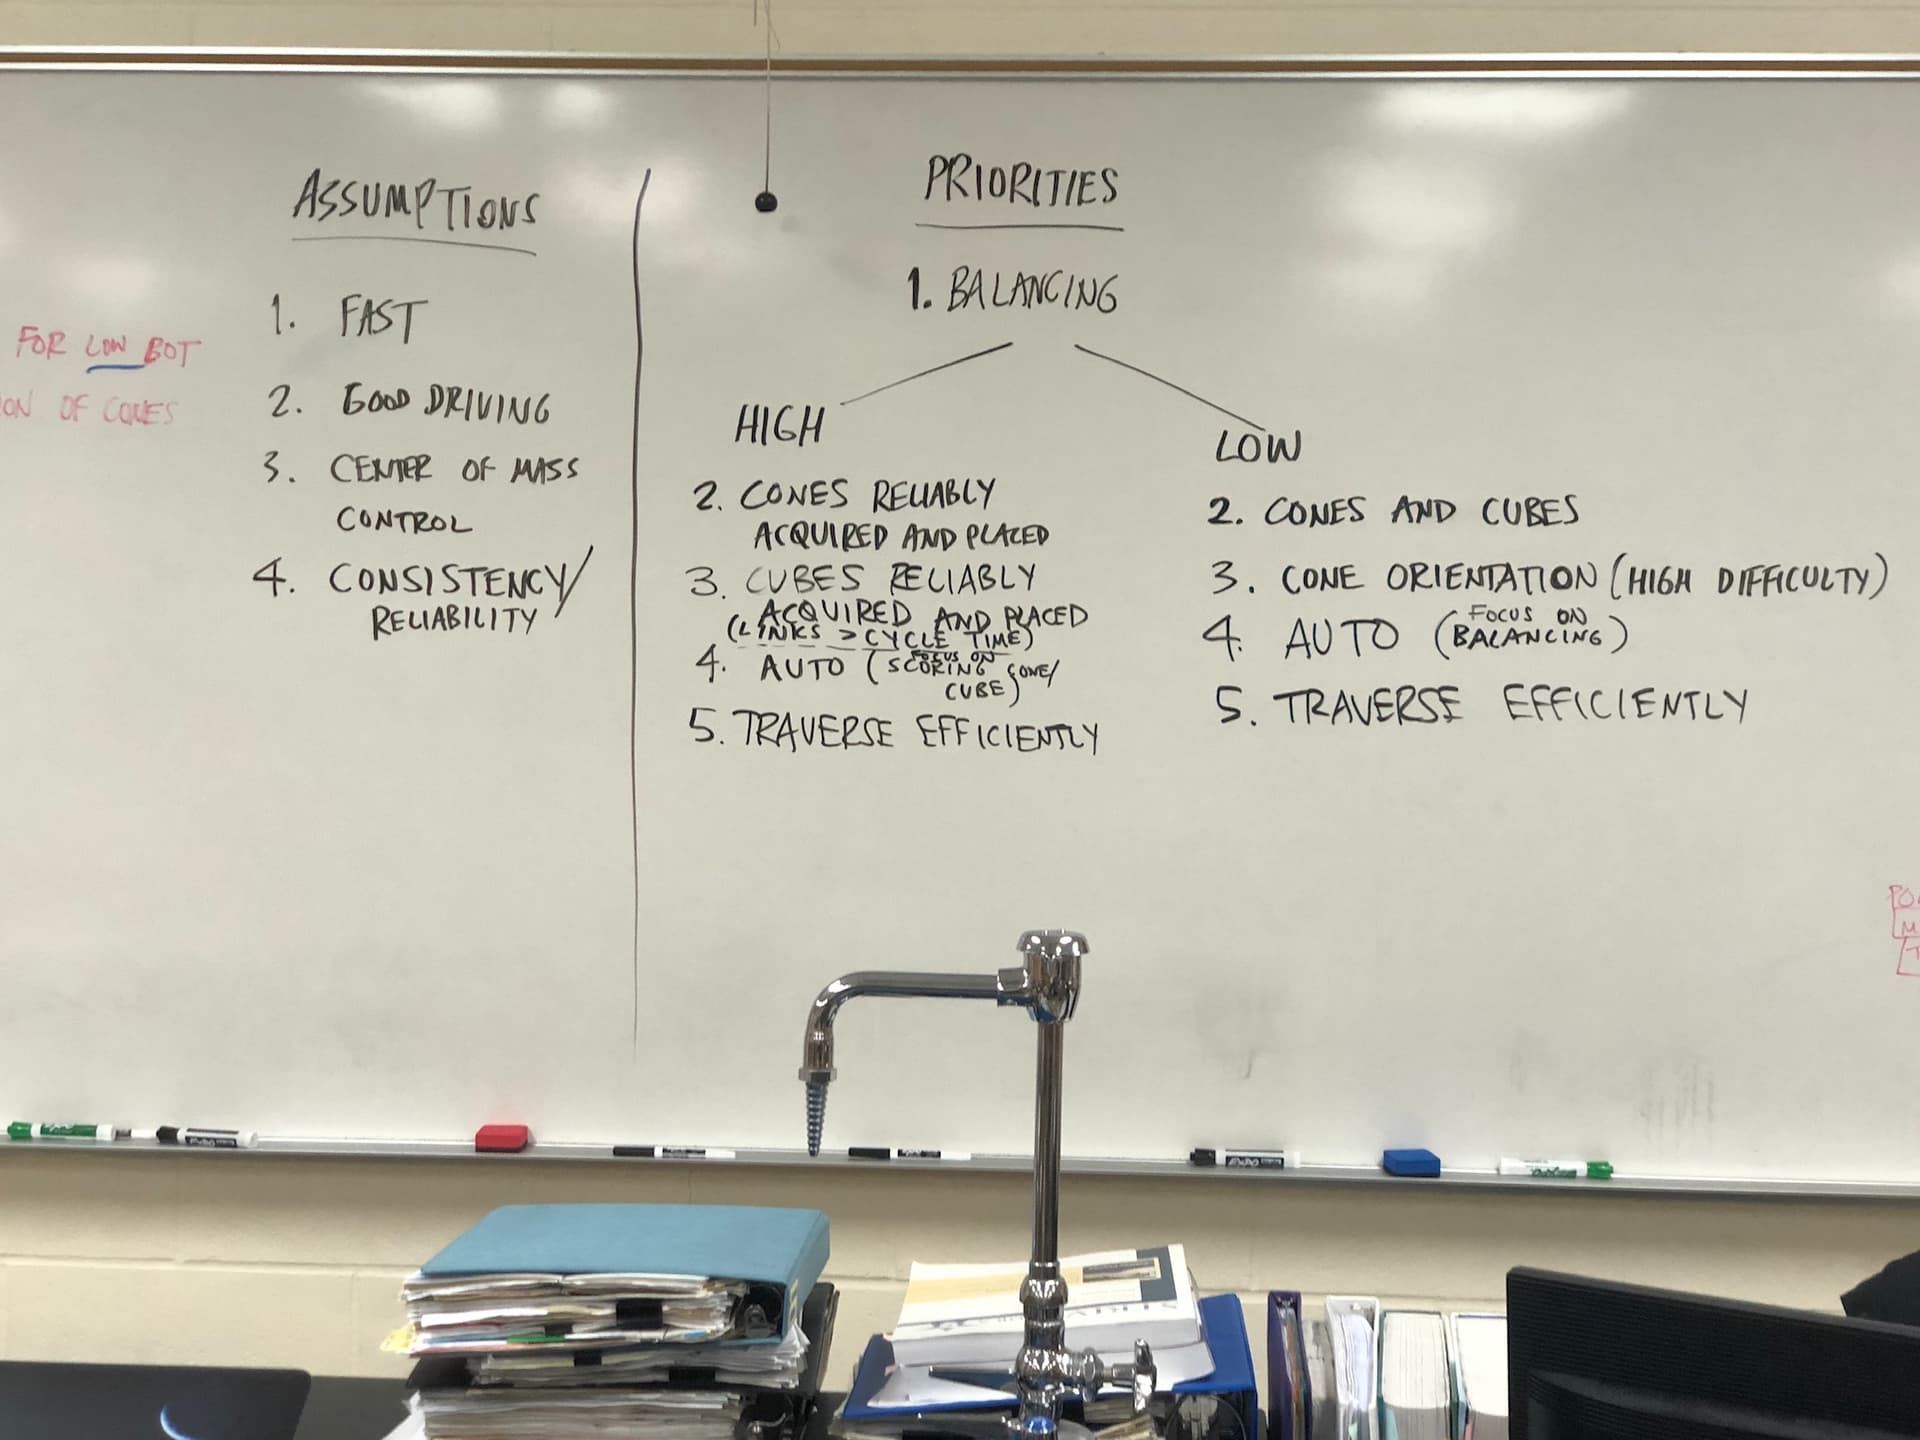 ASSUMPTIONS
1. FAST
2. GOOD DRIVING
3. CENTER OF MASS
CONTROL
4. CONSISTENCY/
RELIABILITY
FOR LOW BOT
OF CONES
PRIORITIES
1. BALANCING
HIGH
2. CONES RELIABLY
ACQUIRED AND PLACED
3. CUBES RELIABLY
ACQUIRED AND PLACED
(LINKS > CYCLE TIME)
4. AUTO (FOCUS ON
SCORING CONE/
CUBE)
5. TRAVERSE EFFICIENTLY
LOW
2. CONES AND CUBES
3. CONE ORIENTATION (HIGH DIFFICULTY)
4. AUTO (FOCUS ON
BALANCING)
5. TRAVERSE EFFICIENTLY
EXPO